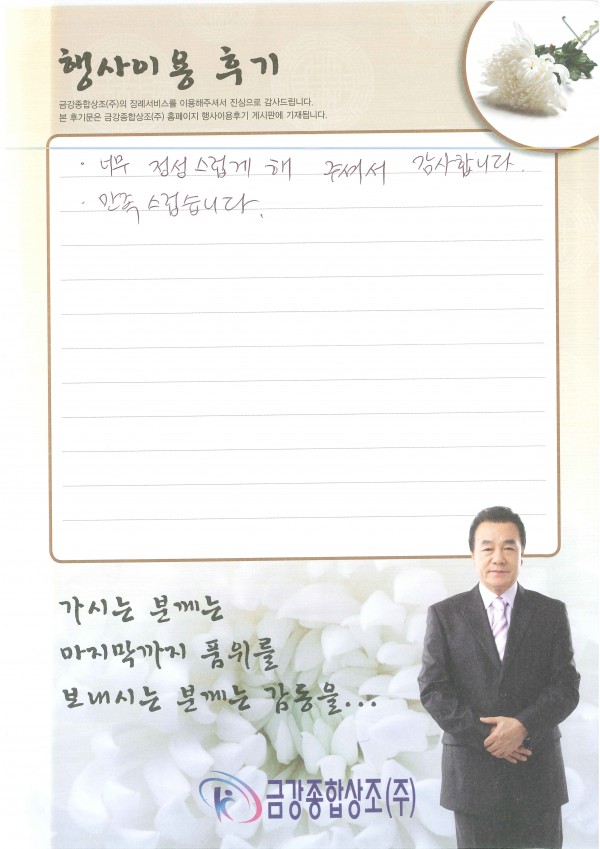 행사이용 후기
금강종합상조(주)의 장례서비스를 이용해주셔서 진심으로 감사드립니다.
본 후기문은 금강종합상조(주) 홈페이지 행사이용후기 게시판에 기재됩니다.
· 너무 정성스럽게 해 주셔서 감사합니다.
· 만족스럽습니다.
가시는 분께는
마지막까지 품위를
보내시는 분께는 감동을...
금강종합상조(주)